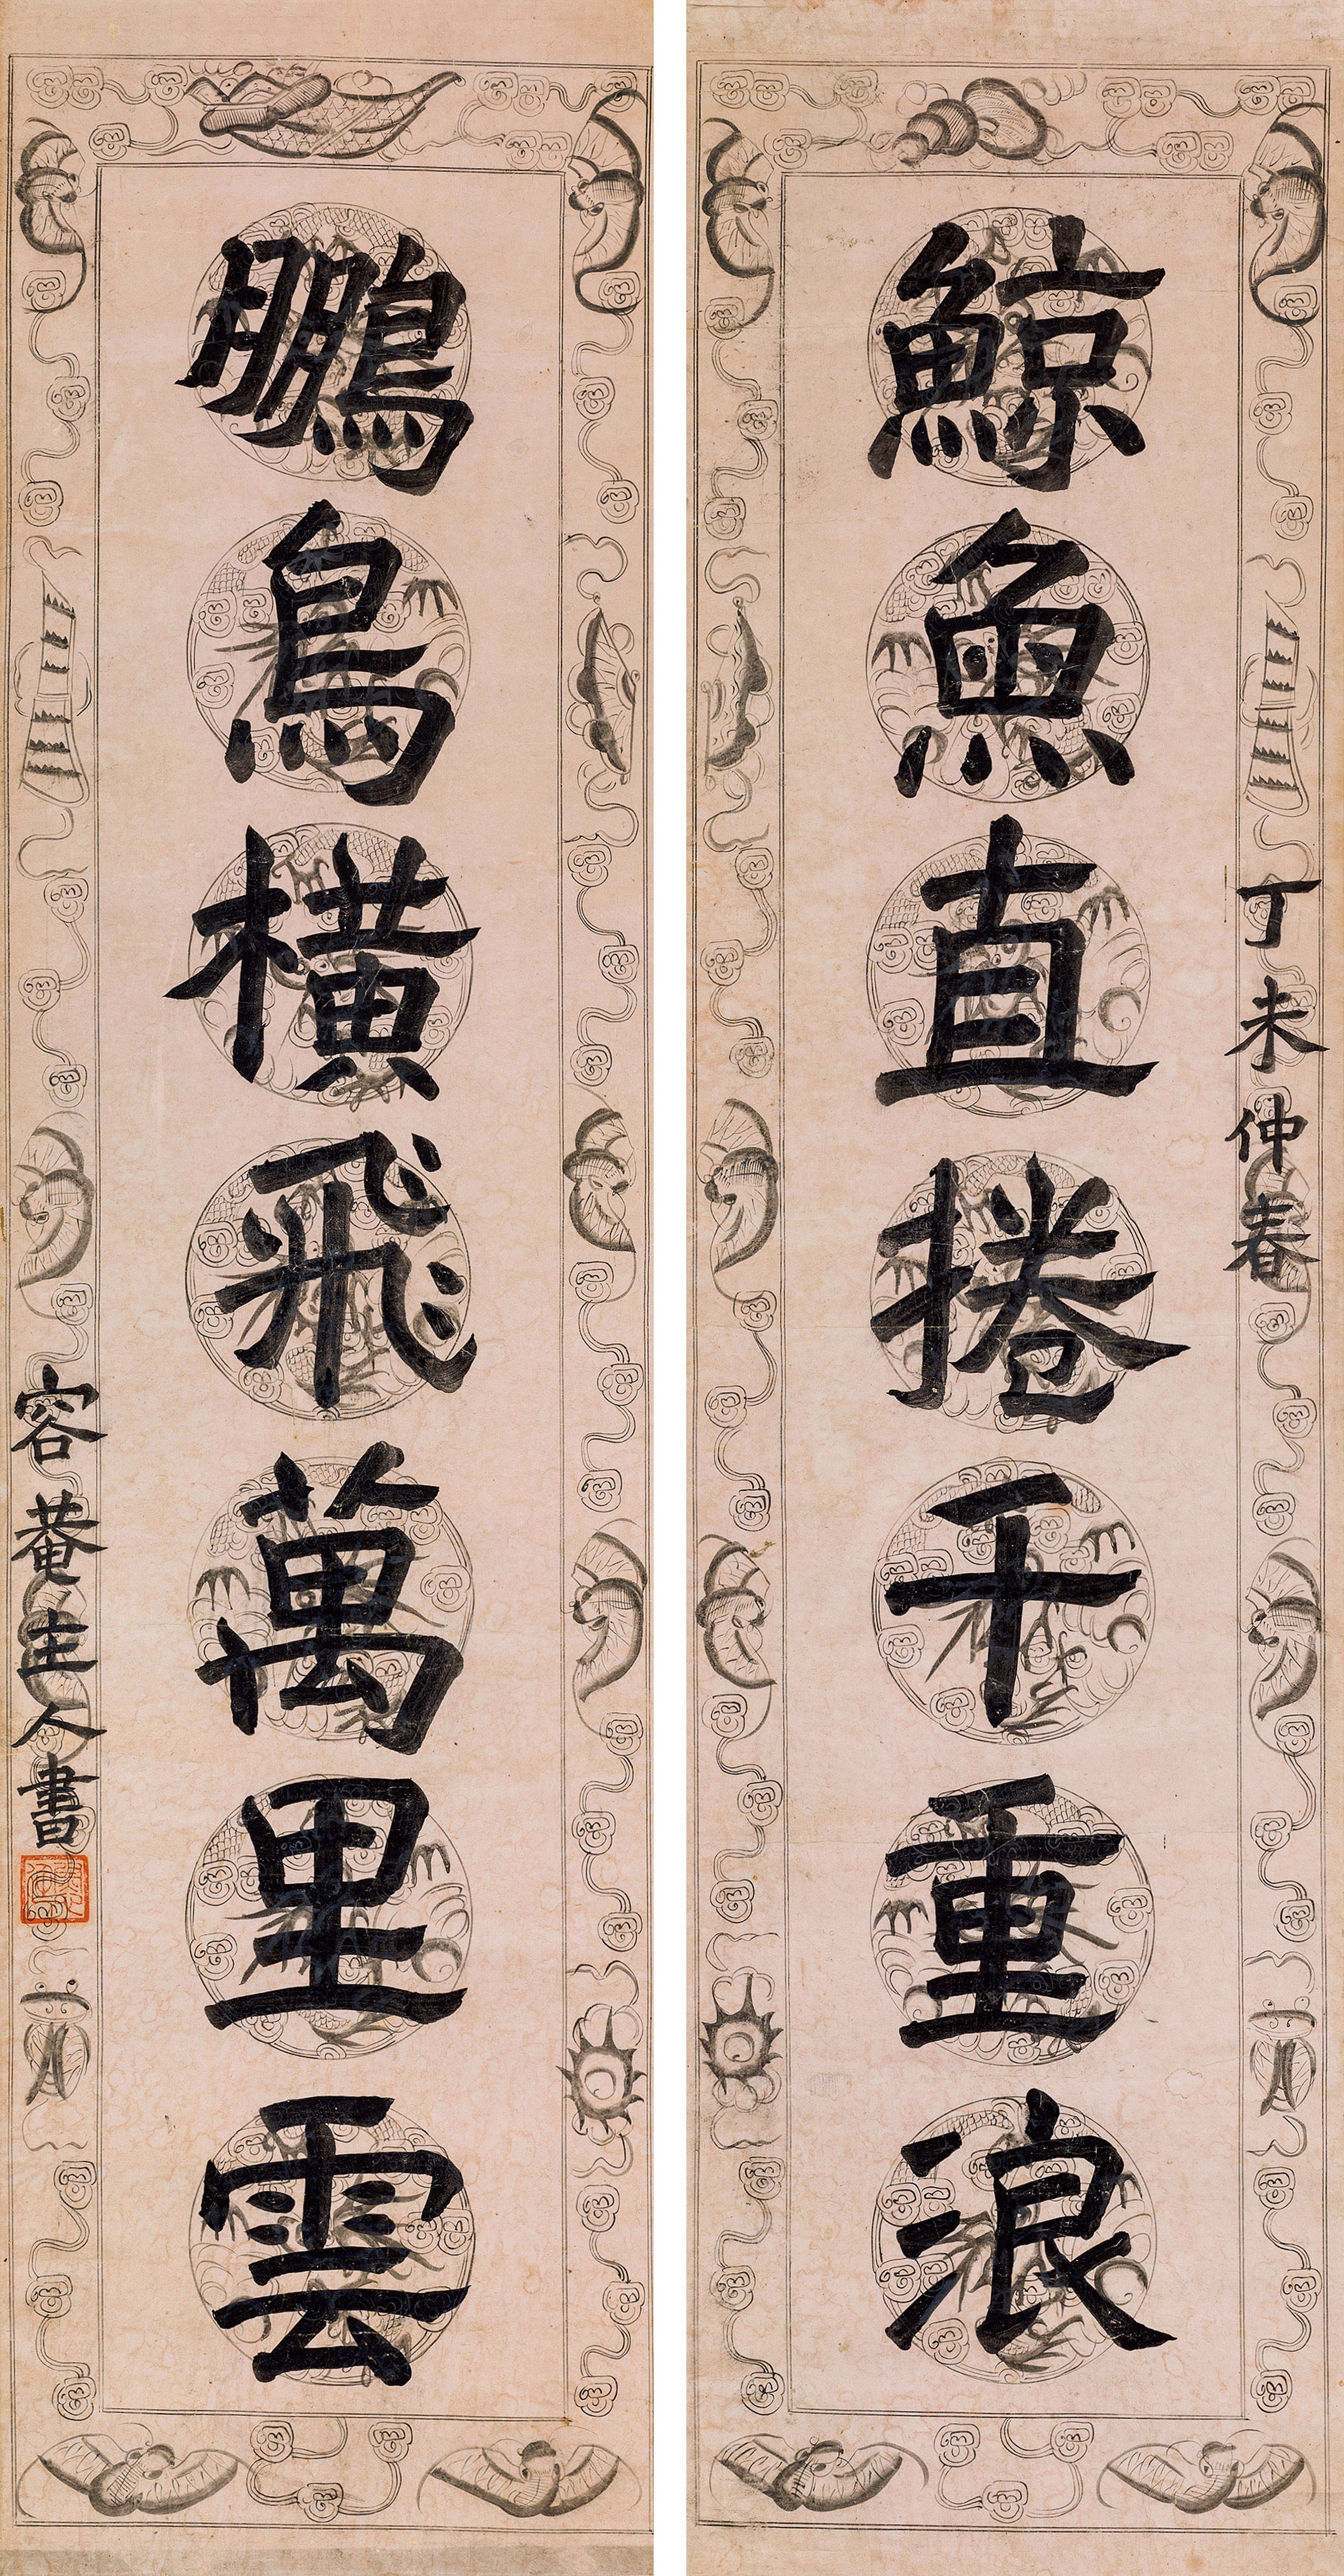 丁未仲春
鯨魚直捲千重浪
鵬鳥橫飛萬里雲
容菴主人書